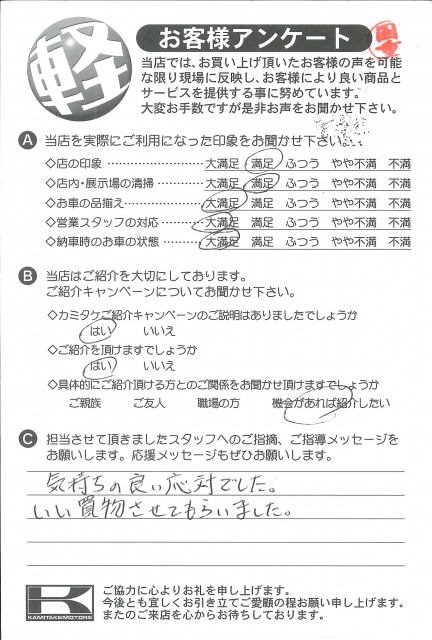 軽
お客様アンケート
当店では、お買い上げ頂いたお客様の声を可能
な限り現場に反映し、お客様により良い商品と
サービスを提供する事に努めています。
大変お手数ですが是非お声をお聞かせ下さい。
A 当店を実際にご利用になった印象をお聞かせ下さい。
◇店の印象 ………………… 大満足 満足 ふつう やや不満 不満
◇店内・展示場の清掃 ………… 大満足 満足 ふつう やや不満 不満
◇お車の品揃え ……………… 大満足 満足 ふつう やや不満 不満
◇営業スタッフの対応 ………… 大満足 満足 ふつう やや不満 不満
◇納車時のお車の状態 ………… 大満足 満足 ふつう やや不満 不満
B 当店はご紹介を大切にしております。
ご紹介キャンペーンについてお聞かせ下さい。
◇カミタケご紹介キャンペーンのご説明はありましたでしょうか
はい いいえ
◇ご紹介を頂けますでしょうか
はい いいえ
◇具体的にご紹介頂ける方とのご関係をお聞かせ頂けますでしょうか
ご親族 ご友人 職場の方 機会があれば紹介したい
C 担当させて頂きましたスタッフへのご指摘、ご指導メッセージを
お願いします。応援メッセージもぜひお願いします。
気持ちの良い応対でした。
いい買物させてもらいました。
KAMITAKEMOTORS
ご協力に心よりお礼を申し上げます。
今後とも宜しくお引き立てご愛顧の程お願い申し上げます。
またのご来店を心からお待ちしております。